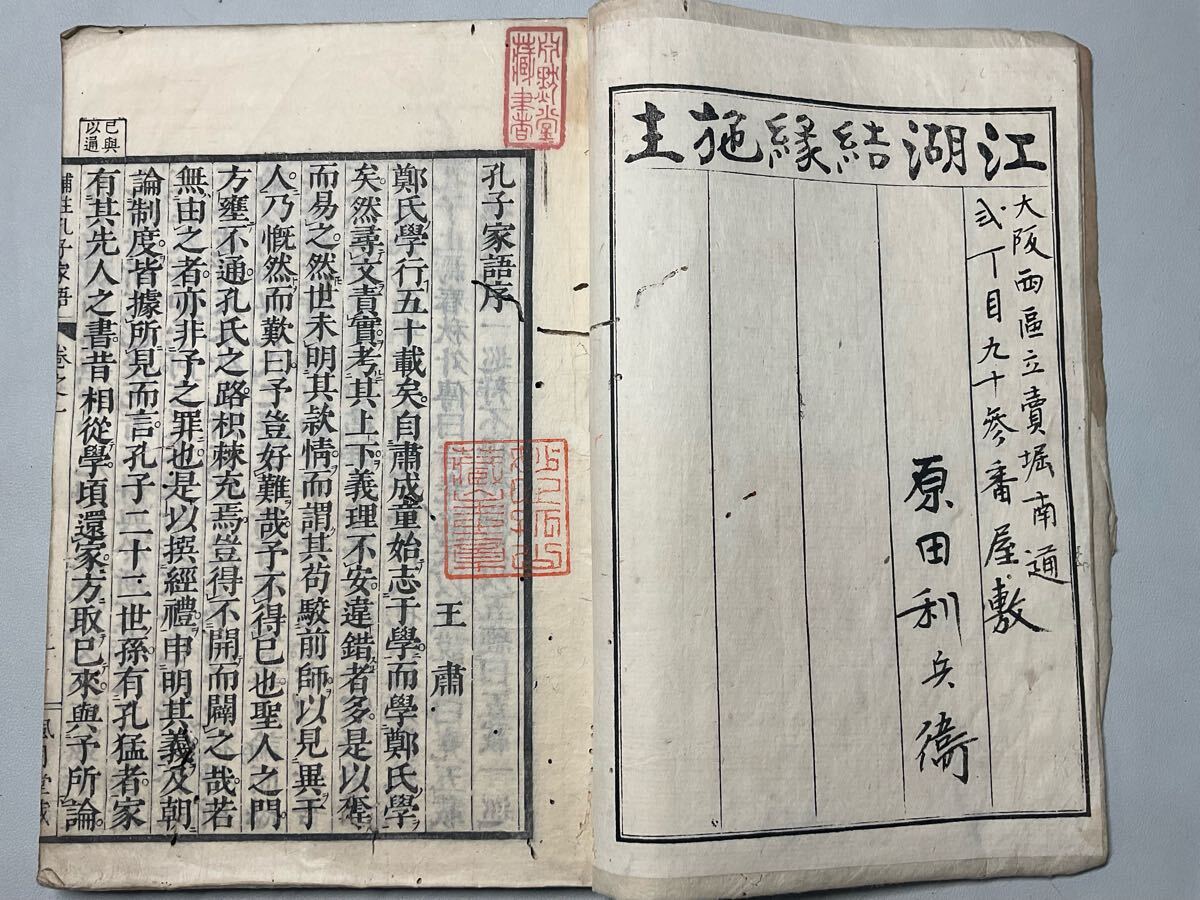 江湖結縁施主
大阪西區立賣堀南通
弐丁目九十參番屋敷
原田利兵衞
藏書
已與
以過
孔子家語序
王肅
鄭氏學行五十載矣自肅成童始志于學而學鄭氏學
矣然尋文責實考其上下義理不安違錯者多是以奪
而易之然世未明其款情而謂其苟駮前師以見異于
人乃慨然而歎曰予豈好難哉予不得已也聖人之門
方壅不通孔氏之路枳棘充焉豈得不開而闢之哉若
無由之者亦非予之罪也是以撰經禮申明其義及朝
論制度皆據所見而言孔子二十二世孫有孔猛者家
有其先人之書昔相從學頃還家方取已來與予所論
補註孔子家語 卷之一